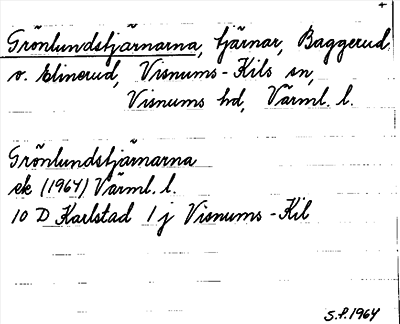 Grönlundstjärnarna, tjärnar, Baggerud
o. Elinerud, Visnums-Kils sn,
Visnums hd, Värml. l.
Grönlundstjärnarna
ek (1964) Värml. l.
10 D Karlstad 1 j Visnums-Kil
S.F. 1964